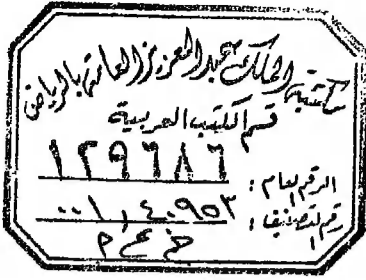 مكتبة الملك عبد العزيز العامة بالرياض
قسم الكتب العربية
الرقم العام : ١٢٩٦٨٦
رقم التصنيف : ٠٠١,٤٠٩٥٢
خ ع م